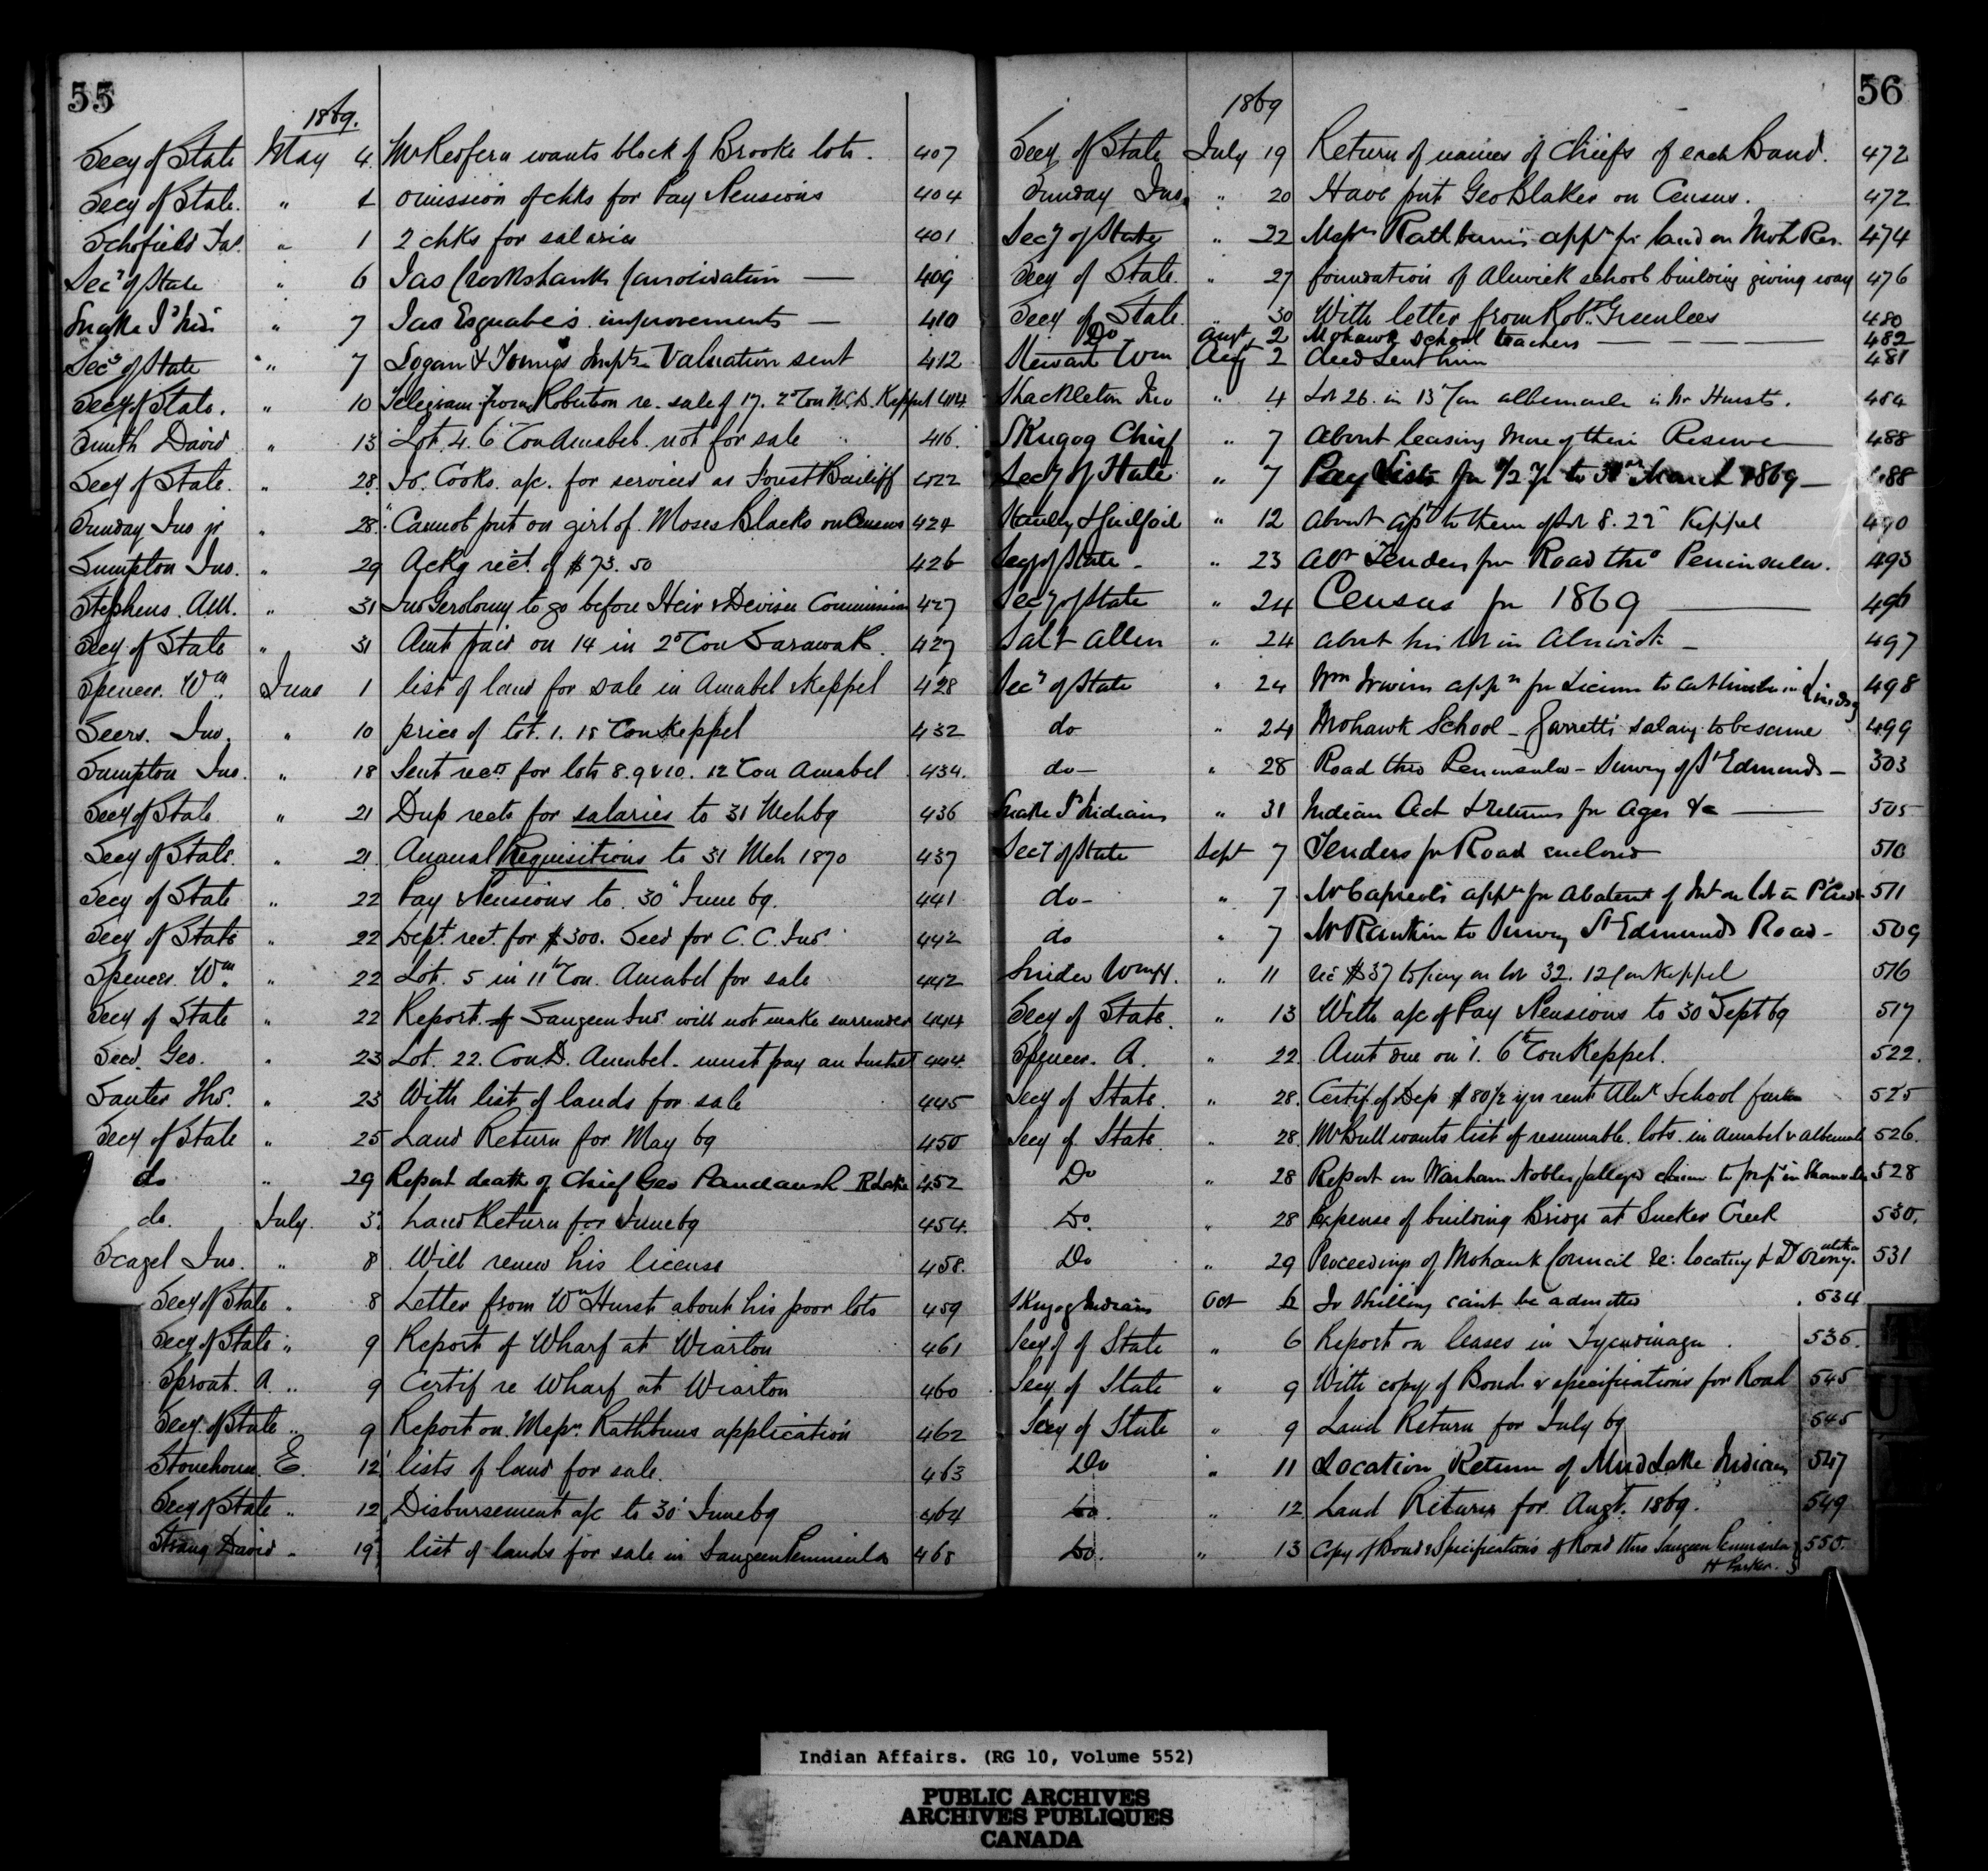 55
1869.
Secy of State May 4 McKeofern wants block of Brooke lots. 407
Secy of State. " 4 omission of chks for Pay Pensions 404
Schofield Jas. " 1 2 chks for salaries 401
Secy of State " 6 Jas Crookshank 409
Snake Id Inds " 7 Jas Esquabe's improvements — 410
Secy of State " 7 Logan & Youngs Impts Valuation sent 412
Secy of State. " 10 Telegram from Robertson re. sale of 17. 2d Con N.C.D. Keppel 414
Smith David " 13 Lot. 4. 6 Con Amabel. not for sale 416.
Secy of State. " 28. Jo. Cooks. a/c. for services as Forest Bailiff 422
Sunday Jno jr " 28. Cannot put on girl of Moses Blacks on Census 424
Sumpton Jno. " 29 Ackg rect. of $73.50 426
Stephens. AM. " 31 Jno Gerolomy to go before Heir & Devisee Commission 427
Secy of State " 31 Amt paid on 14 in 2d Con Sarawak. 427
Spencer. Wm. June 1 list of land for sale in Amabel & Keppel 428
Seers. Jno. " 10 price of lot. 1. 18 Con Keppel 432
Sumpton Jno. " 18 Sent rects for lots 8. 9 & 10. 12 Con Amabel 434.
Secy of State " 21 Dup rects for salaries to 31 Mch 69 436
Secy of State. " 21 Annual Requisitions to 31 Mch 1870 437
Secy of State " 22 Pay & Pensions to 30 June 69. 441
Secy of State " 22 Dept. rect. for $300. Seed for C. C. Inds. 442
Spencer. Wm. " 22 Lot. 5 in 11th Con. Amabel for sale 442
Secy of State " 22 Report of Saugeen Inds. will not make surrender 444
Seed. Geo. " 23 Lot. 22. Con D. Amabel. must pay an Instmt 444
Santer Ths. " 23 With list of lands for sale 445
Secy of State " 25 Land Return for May 69 450
do " 29 Report death of Chief Geo Paudaush 452
do. July. 3. Land Return for June 69 454.
Scagel Jno. " 8 Will renew his license 458.
Secy of State " 8 Letter from Wm Hurst about his poor lots 459
Secy of State " 9 Report of Wharf at Wiarton 461
Sproat. A. " 9 Certif re Wharf at Wiarton 460
Secy. of State " 9 Report on Messrs. Rathbuns application 462
Stonehouse. E. 12 lists of land for sale. 463
Secy of State " 12 Disbursement a/c to 30 June 69 464
Strang David " 19 list of lands for sale in Saugeen Peninsula 468
56
1869
Secy of State July 19 Return of names of Chiefs of each Band. 472
Sunday Jno. " 20 Have put Geo Blaker on Census. 472
Secy of State " 22 Messrs Rathbun's appn for land on Moh Res. 474
Secy of State. " 27 foundation of Alnwick school building giving way 476
Secy of State. " 30 With letter from Robt. Greenlees 480
Do Augt 2 Mohawk School teachers — 482
Stewart Wm Aug 2 deed sent him 481
Shackleton Jno " 4 Lot 26. in 13 Con albemarle is Mr Hursts. 484
Skugog Chief " 7 about leasing more of their Reserve — 488
Secy of State " 7 Pay Lists for 1/2 yr to 31st March 1869 — 488
Stanley & Guilfoil " 12 about apt to them of Lot 8. 22 Keppel 490
Secy of State " 23 abt Tenders for Road thro Peninsula. 493
Secy of State " 24 Census for 1869 — 496
Salt Allen " 24 about his lot in Alnwick — 497
Secy of State " 24 Wm Irwins appn for License to cut timber in Lindsay 498
do " 24 Mohawk School — Garretts salary to be same 499
do — " 28 Road thro Peninsula — Survey of St Edmunds — 503
Snake Id Indians " 31 Indian Act & returns for Ages &c — 505
Secy of State Sept 7 Tenders for Road enclosed 510
do — " 7 Mr Capreols appn for abatement of Int on lot in 511
do " 7 Mr Rankin to Survey St Edmunds Road — 509
Snider Wm H. " 11 rec $37 to pay on lot 32. 12 Con Keppel 516
Secy of State. " 13 With a/c of Pay & Pensions to 30 Sept 69 517
Spencer. A. " 22 Amt due on 1. 6th Con Keppel. 522.
Secy of State. " 28. Certif. of Dep $80 1/2 yrs rent Alnk School farm 525
Secy of State. " 28. McBull wants list of resumable. lots. in Amabel & Albemarle 526.
Do " 28 Report on Warham Nobles alleged claim to 528
Do. " 28 Expense of building Bridge at Sucker Creek 530.
Do " 29 Proceedings of Mohawk Council re: locating & 531
Skugog Indians Oct 6 Jo Skilling cant be admitted 534
Secy of State " 6 Report on leases in Tyendinaga. 535.
Secy of State " 9 With copy of Bond & specifications for Road 545
Secy of State " 9 Land Return for July 69 545
Do " 11 Location Return of Mud Lake Indians 547
Do. " 12 Land Return for Augt. 1869. 549
Do. " 13 Copy of Bond & Specifications of Road thro Saugeen Peninsula 550.
H Parker.
T
U
Indian Affairs. (RG 10, Volume 552)
PUBLIC ARCHIVES
ARCHIVES PUBLIQUES
CANADA